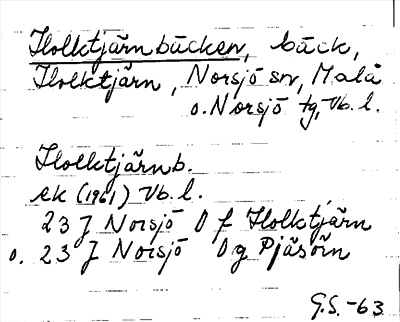 Holktjärnbäcken, bäck,
Holktjärn, Norsjö sn, Malå
o. Norsjö tg, Vb. l.
Holktjärnb.
ek (1961) Vb. l.
23 J Norsjö O f Holktjärn
o. 23 J Norsjö O g Pjäsörn
G.S. -63